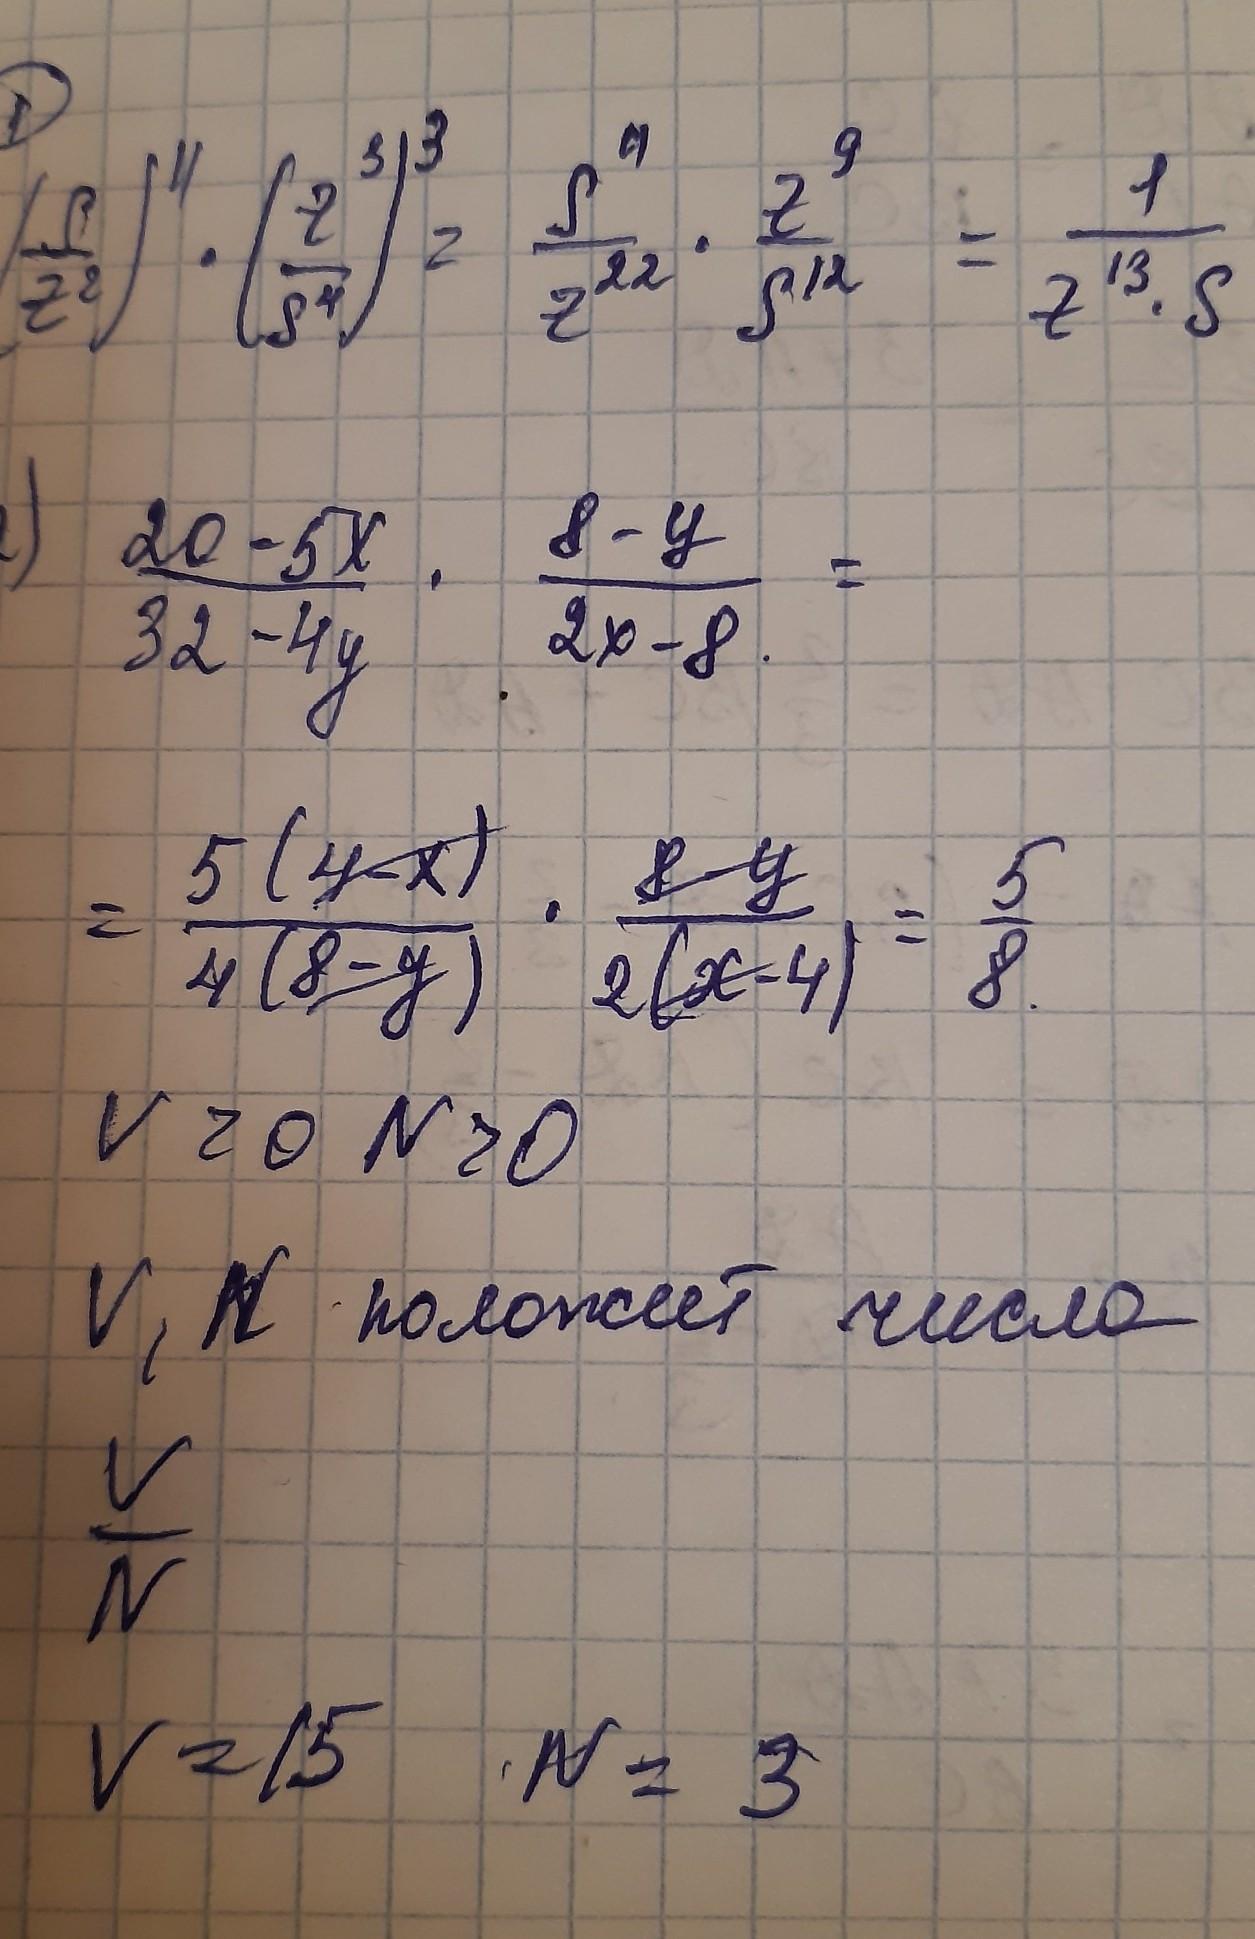 1
(s/z²)¹¹ · (z³/s⁴)³ = s¹¹/z²² · z⁹/s¹² = 1/(z¹³ · s)
2) (20 - 5x)/(32 - 4y) · (8 - y)/(2x - 8) =
= 5(4 - x)/4(8 - y) · (8 - y)/2(x - 4) = 5/8.
V = 0 N = 0
V, N положит числа
V/N
V = 15 N = 3